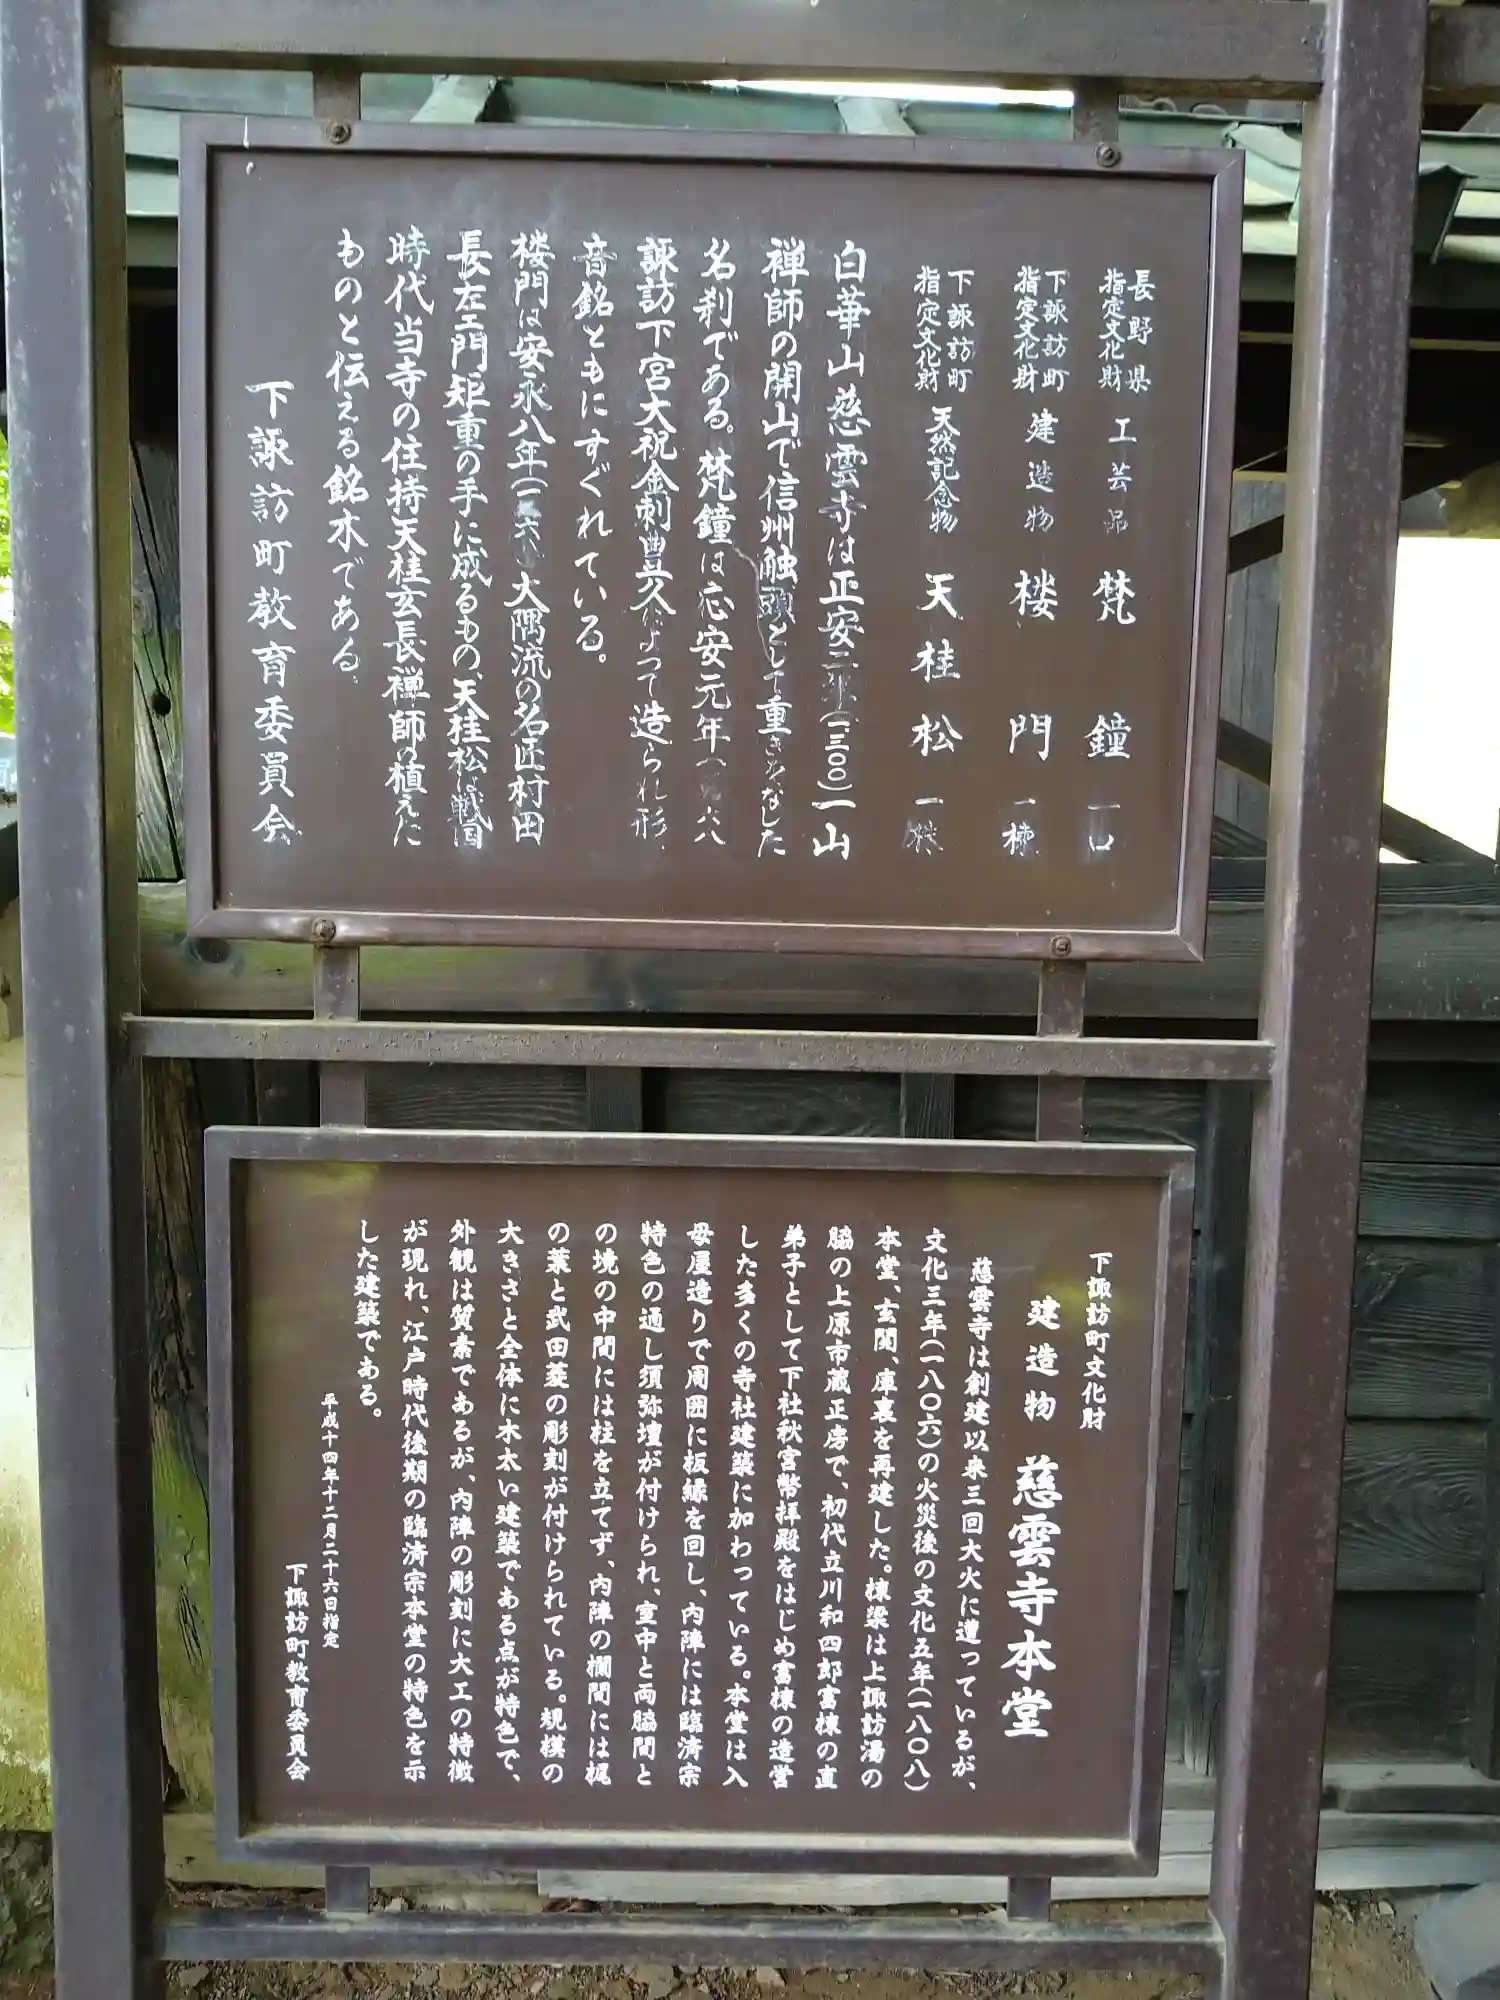 長野県
指定文化財 工芸品 梵鐘 一口
下諏訪町
指定文化財 建造物 楼門 一棟
下諏訪町
指定文化財 天然記念物 天桂松 一株
白華山慈雲寺は正安二年(一三〇〇)一山
禅師の開山で信州触頭として重きをなした
名刹である。梵鐘は応安元年(一三六八
諏訪下宮大祝金刺豊久によって造られ形、
音銘ともにすぐれている。
楼門は安永八年(一七六 大隅流の名匠村田
長左エ門矩重の手に成るもの、天桂松は戦国
時代当寺の住持天桂玄長禅師の植えた
ものと伝える銘木である。
下諏訪町教育委員会
下諏訪町文化財
建造物 慈雲寺本堂
慈雲寺は創建以来三回大火に遭っているが、
文化三年(一八〇六)の火災後の文化五年(一八〇八)
本堂、玄関、庫裏を再建した。棟梁は上諏訪湯の
脇の上原市蔵正房で、初代立川和四郎富棟の直
弟子として下社秋宮幣拝殿をはじめ富棟の造営
した多くの寺社建築に加わっている。本堂は入
母屋造りで周囲に板縁を回し、内陣には臨済宗
特色の通し須弥壇が付けられ、室中と両脇間と
の境の中間には柱を立てず、内陣の欄間には梶
の葉と武田菱の彫刻が付けられている。規模の
大きさと全体に木太い建築である点が特色で、
外観は質素であるが、内陣の彫刻に大工の特徴
が現れ、江戸時代後期の臨済宗本堂の特色を示
した建築である。
平成十四年十二月二十六日指定
下諏訪町教育委員会